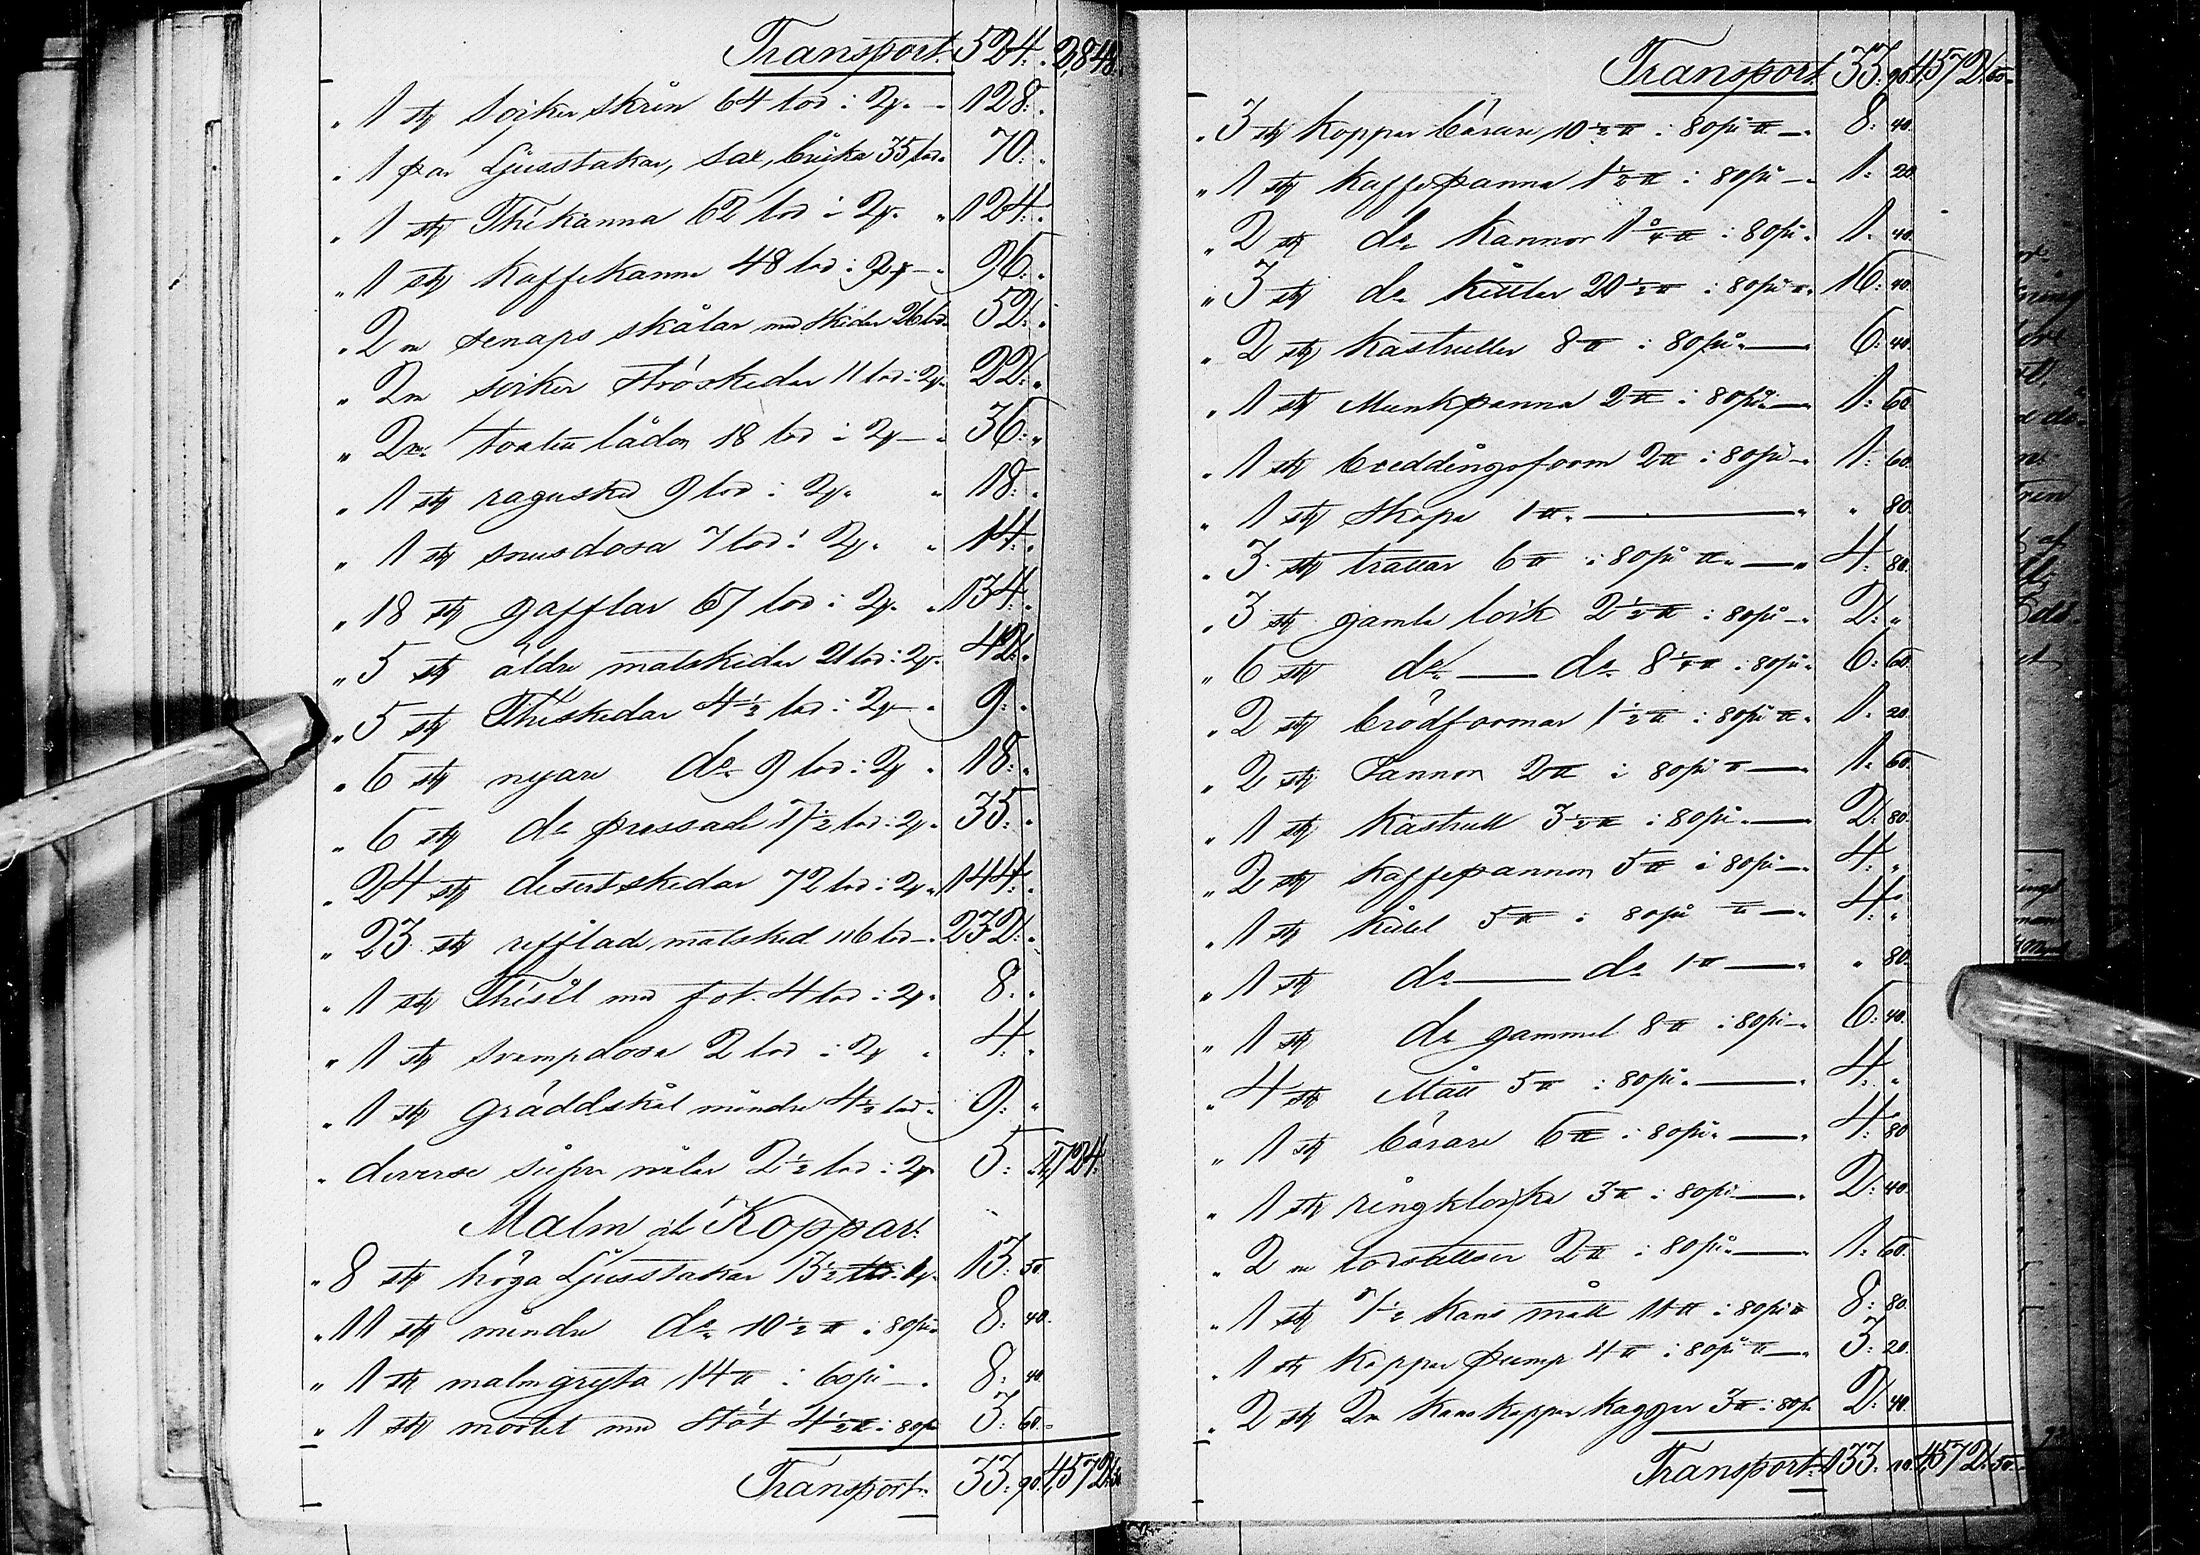 Transport. 524. " 2,848.
" 1 st socker skrin 64 lod : 2r. - 128: "
" 1 par Ljusstakar, sax, bricka 35 lod. 70: "
" 1 st Thékanna 62 lod : 2r. " 124: "
" 1 st Kaffekanna 48 lod : 2r - " 96: "
" 2 " senaps skålar med skedar 26 lod. 52: "
" 2 " socker ströskedar 11 lod : 2r. 22: "
" 2 " lådor 18 lod : 2r - " 36: "
" 1 st ragusked 9 lod : 2r. " 18: "
" 1 st snusdosa 7 lod : 2r. " 14: "
" 18 st gafflar 67 lod : 2r. " 134: "
" 5 st äldre matskedar 21 lod : 2r. 42: "
" 5 st Théskedar 4½ lod : 2r - " 9: "
" 6 st nyare do 9 lod : 2r " 18: "
" 6 st do pressade 17½ lod : 2r. 35: "
" 24 st desertskedar 72 lod : 2r. 144: "
" 23 st refflade matsked 116 lod - " 232: "
" 1 st Thésil med fot. 4 lod : 2r. 8: "
" 1 st svampdosa 2 lod : 2r " 4: "
" 1 st gräddskål mindre 4½ lod. 9: "
" diverse nålar 2½ lod : 2r. 5: " 1,724.
Malm ock Koppar.
" 8 st höga Ljusstakar 13½ 1r. 13: 50
" 11 st mindre do 10½ ℔ : 80pi 8: 40.
" 1 st malmgryta 14 ℔ : 60pi - " 8: 40.
" 1 st mortel med stöt 4½ ℔ : 80pi 3: 60.
Transport. 33: 90. 4,572: 50
Transport 33: 90 4,572: 50.
" 3 st Koppar bäcare 10½ ℔ : 80pi ℔ - " 8: 40.
" 1 st Kaffepanna 1½ ℔ : 80pi - " 1: 20
" 2 st do Kannor ℔ : 80pi. 1: 40.
" 3 st do Kittlar 20½ ℔ : 80pi ℔. 16: 40.
" 2 st Kastruller 8 ℔ : 80pi. - " 6: 40.
" 1 st Munkpanna 2 ℔ : 80pi - " 1: 60
" 1 st form 2 ℔ : 80pi - " 1: 60.
" 1 st skopa 1 ℔. - " " 80.
" 3 st trattar 6 ℔ : 80pi ℔. - " 4: 80.
" 3 st gamla lock 2½ ℔ : 80pi - " 2: "
" 6 st do - do ℔ : 80pi. 6: 60.
" 2 st brödformar 1½ ℔ : 80pi ℔. 1: 20.
" 2 st Pannor 2 ℔ : 80pi ℔ - " 1: 60.
" 1 st Kastrull 3½ ℔ : 80pi. - " 2: 80.
" 2 st Kaffepannor 5 ℔ : 80pi - " 4: "
" 1 st Kittel 5 ℔ : 80pi ℔ - " 4: "
" 1 st do - do 1 ℔ - " " 80.
" 1 st do gammal 8 ℔ : 80pi - " 6: 40.
" 4 st Mått 5 ℔ : 80pi. - " 4: "
" 1 st bäcare 6 ℔ : 80pi. - " 4: 80
" 1 st ringklocka 3 ℔ : 80pi - " 2: 40.
" 2 " 2 ℔ : 80pi. - " 1: 60.
" 1 st Kans mått 11 ℔ : 80pi ℔ 8: 80.
" 1 st Koppar pump 4 ℔ : 80pi ℔ - " 3: 20.
" 2 st Kans Koppar Kaggar 3 ℔ : 80pi 2: 40.
Transport. 133: 10. 4,572: 50.